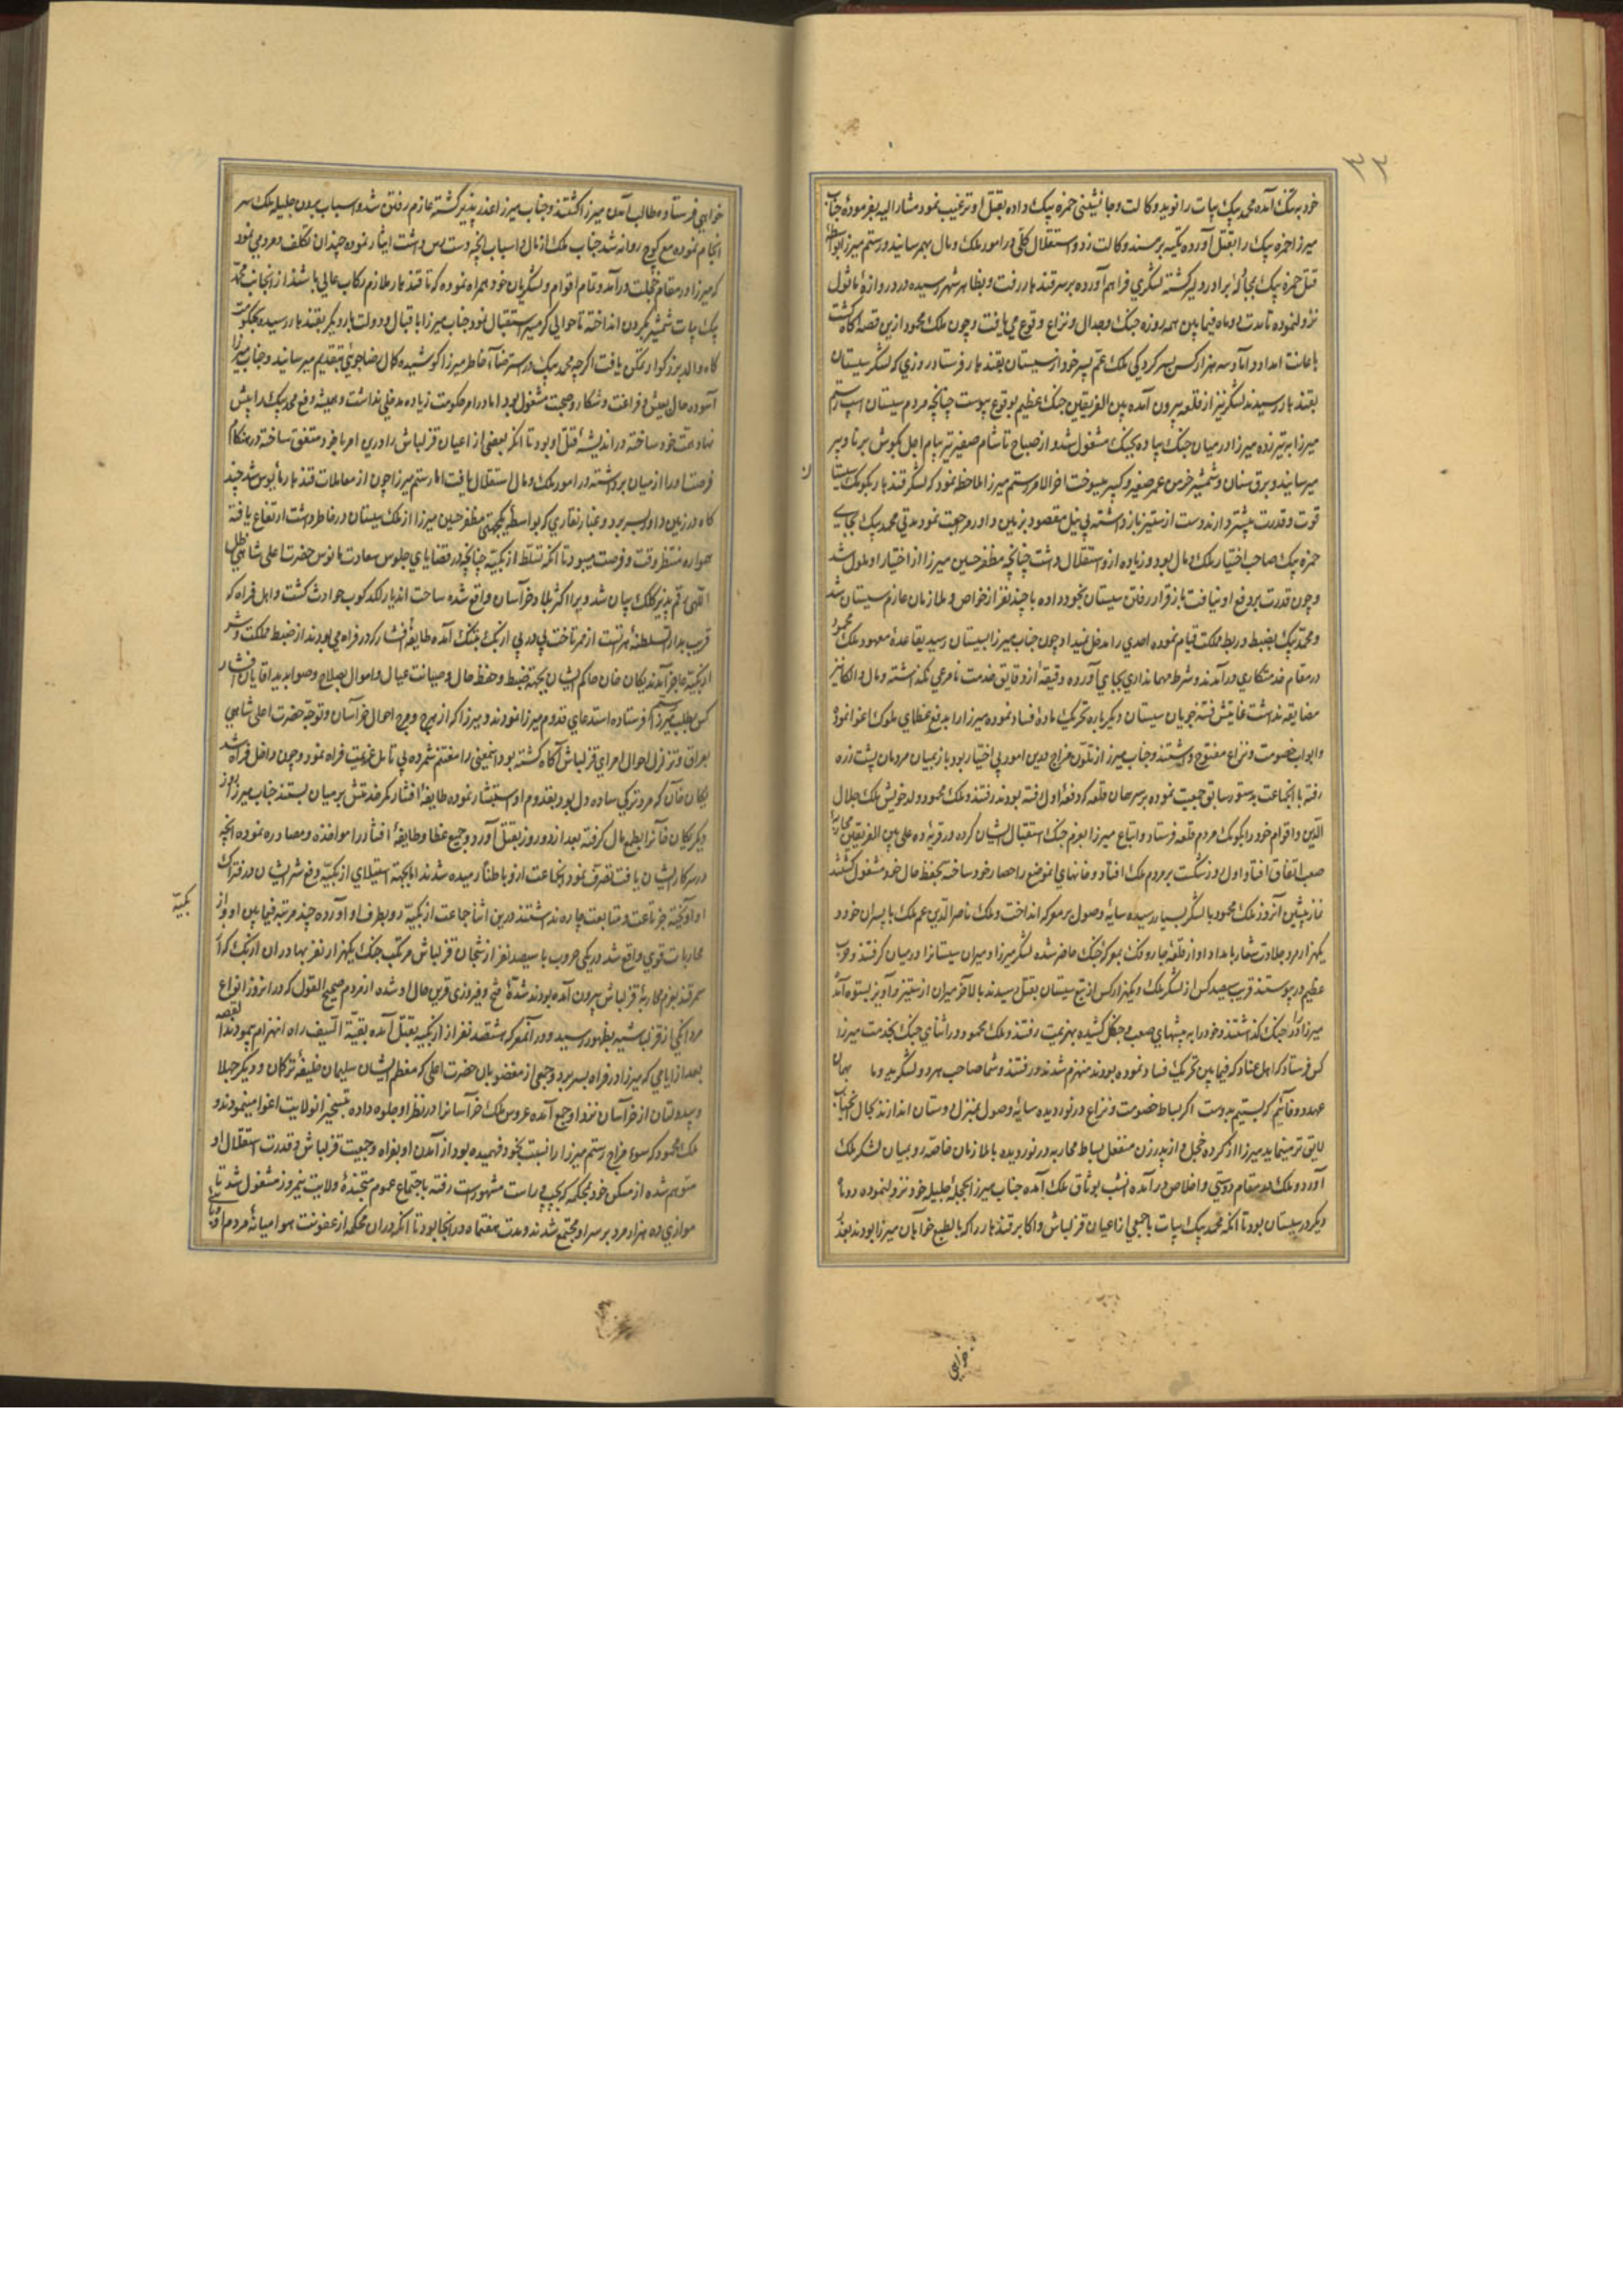 ۳۳
خود به تنگ آمده محمد بیک بیات را نوید وکالت و جانشینی حمزه بیک داده بقتل او ترغیب نمود مشار الیه بفرموده جناب
میرزا حمزه بیک را بقتل آورده تکیه بر مسند وکالت زد و استقلال کلی در امور ملک و مال بهم رسانید و رستم میرزا بواسطه
قتل حمزه بیک بجای برادر دلیر کشته لشکری فراهم آورده بر سر قندهار رفت و بظاهر شهر رسیده در دروازه ماشول
نزول نموده تا مدت دو ماه فیما بین همه روزه جنگ و جدال و نزاع وقوع می یافت و چون ملک محمود ازین قصه آگاه گشت
باعانت امداد و اماد سه هزار کس بسرکردگی ملک عم پسر خود از سیستان بقندهار فرستاد روزی که لشکر سیستان
بقندهار رسیدند لشکر نیز از قلعه بیرون آمده بین الفریقین جنگ عظیم بوقوع پیوست چنانچه مردم سیستان اسپ رستم
میرزا بر تیر زده میرزا در میان جنگ پیاده بجنگ مشغول شد و از صباح تا شام صفیر تیر پیام اجل بگوش برنا و پیر
میرسانید و برق سنان و شمشیر خرمن عمر صغیر و کبیر میسوخت آخر الامر رستم میرزا ملاحظه نمود که لشکر قندهار بکومک سیستا
ن
قوت و قدرت بیشتر دارند دست از ستیز باز داشته بی نیل مقصود بزمین داور مرجعت نمود مدتی محمد بیک بجای
حمزه بیک صاحب اختیار ملک و مال بود و زیاده ازو استقلال داشت چنانچه مظفر حسین میرزا از اختیار او ملول شد
و چون قدرت بر دفع او نیافت باز قرار رفتن سیستان بخود داده با چند نفر از خواص و ملازمان عازم سیستان شد
و محمد بیک بضبط و ربط مملکت قیام نموده احدی را مدخل نمیداد چون جناب میرزا بسیستان رسید بقاعده معهود ملک محمود
در مقام خدمتکاری درآمدند و شرط مهمانداری بجای آورده دقیقه از دقایق خدمت نامرعی نگذاشته و مال و الکا نیز
مضایقه نداشت غایتش فتنه جویان سیستان دیگر باره تحریک ماده فساد نموده میرزا را بدفع عظمای ملوک اغوا نموده
و ابواب خصومت و نزاع مفتوح داشتند و جناب میرزا از تلون مزاج درین امور بی اختیار بود باز بمیان مردمان پشت زره
رفته با انجماعت بدستور سابق جمعیت نموده بر سر همان قلعه که دفعه اول رفته بودند رفتند و ملک محمود ولد خویش ملک جلال
الدین و اقوام خود را بکومک مردم قلعه فرستاد و اتباع میرزا بعزم جنگ استقبال ایشان کرده در قریه ده علی بین الفریقین محاربه
صعب اتفاق افتاد اول روز شکست بر مردم ملک افتاد و خانهای آنموضع را حصار خود ساخته بحفظ حال خود مشغول گشتند
نماز پیشین آنروز ملک محمود با لشکر بسیار رسیده سایه وصول بر معرکه انداخت و ملک ناصر الدین عم ملک با پسران خود و
یکهزار مرد جلادت شعار بامداد او از قلعه جارونک بمعرکه جنگ حاضر شده لشکر میرزا و میران سیستانرا در میان گرفتند و حرب
عظیم در پیوستند قریب سیصد کس از لشکر ملک و یکهزار کس از تبع سیستان بقتل رسیدند بالاخر میران از ستیز و آویز بستوه آمده
میرزا را در جنگ گذاشتند و خود را به بیشهای صعب و جنگل کشیده بهزیمت رفتند و ملک محمود در اثنای جنگ بخدمت میرزا
کس فرستاد که اهل عناد که فیما بین تحریک فساد نموده بودند منهزم شدند و رفتند و شما صاحب مردو لشکرید و ما بهمان
عهد و وفائیم که بستیم بدوست اگر بساط خصومت و نزاع درنوردیده سایه وصول بمنزل دوستان اندازند بحال نجبات
لایق تر مینماید میرزا از کرده خجل و از پدر زن منفعل بساط محاربه درنوردیده با ملازمان خاصه رو بمیان لشکر ملک
آورد و ملک در مقام دوستی و اخلاص درآمده انشب بوثاق ملک آمده جناب میرزا بحجله جلیله خود نزول نموده روزی
دیگر در سیستان بود تا آنکه محمد بیک بیات با جمعی از اعیان قزلباش و اکابر قندهار را که بالطبع خواهان میرزا بودند بعذر
خواهی
خواهی فرستاده طالب آمدن میرزا گشتند و جناب میرزا عذر پذیر گشته عازم رفتن شد و اسباب بردن جلیله ملک سر
انجام نموده مع کوچ روانه شد جناب ملک از مال و اسباب آنچه دست رس داشت ایثار نموده چندان تکلف و مردمی نمود
که میرزا در مقام خجلت درآمد و تمام اقوام و لشکریان خود همراه نموده که تا قندهار ملازم رکاب عالی باشند از آنجانب محمد
بیک بیات شمشیر بگردن انداخته تا حوالی گرمسیر استقبال نمود جناب میرزا باقبال و دولت بار دیگر بقندهار رسیده بحکومت
گاه والد بزرگوار تمکن یافت اگرچه محمد بیک در استرضای خاطر میرزا کوشیده کمال رضاجوئی بتقدیم میرسانید و جناب میرزا
آسوده حال بعیش و فراغت و شکار و صحبت مشغول بود اما در امر حکومت زیاده مدخلی نداشت و همیشه دفع محمد بیک را پیش
نهاد همت خود ساخته در اندیشه قتل او بود تا آنکه بعضی از اعیان قزلباش را درین امر با خود متفق ساخته در هنگام
فرصت او را از میان برداشته در امور ملک و مال استقلال یافت اما رستم میرزا چون از معاملات قندهار مأیوس شد چند
گاه در زمین داور بسر برد و غبار نقاری که بواسطه یکجهتی مظفر حسین میرزا از ملک سیستان در خاطر داشت ارتفاع یافته
همواره منتظر وقت و فرصت میبود تا آنکه تسلط ازبکیه چنانچه در قضایای جلوس سعادت مانوس حضرت اعلی شاهی ظل
اللهی رقم پذیر کلک بیان شد و بر اکثر بلاد خراسان واقع شده ساحت اندیار لکدکوب حوادث گشت و اهل فراه که
قرب بدار السلطنه هرات است از ممر تاخت پی در پی ازبک بتنگ آمده طایفه افشار که در فراه می بودند از ضبط مملکت و شر
ازبکیه عاجز آمدند یکان خان حاکم ایشان بجهة ضبط و حفظ حال و صیانت عیال و اموال بصلاح و صوابدید آقایان افشار
کس بطلب رستم میرزا فرستاده استدعای قدوم میرزا نمودند و میرزا که از هرج و مرج احوال خراسان و توجه حضرت اعلی شاهی
بعراق و تزلزل احوال امرای قزلباش آگاه گشته بود اینمعنی را مغتنم شمرده بی تامل عزیمت فراه نمود و چون داخل فراه شد
یکان خان که مرد ترکی ساده دل بود بقدوم او استبشار نموده طایفه افشار کمر خدمتش بر میان بستند جناب میرزا روز
دیگر یکان خانرا بطمع مال گرفته بعد از دو روز بقتل آورد و جمیع عظما و طایفه افشار را مواخذه و مصادره نموده آنچه
در سرکار ایشان یافت تصرف نمود و انجماعت ازو باطناً رمیده شدند اما بجهة استیلای ازبکیه و رفع شر ایشان در فتراک
او آویخته جز تاعت و متابعت چاره نداشتند درین اثنا جماعت ازبکیه رو بطرف او آورده چند مرتبه فیما بین او و از
بکیه
محاربات قوی واقع شد در یکی حروب با سیصد نفر از شجعان قزلباش مرتکب جنگ یکهزار نفر بهادران ازبک که از
سمرقند بعزم محاربه قزلباش بیرون آمده بودند شده فتح و فیروزی قرین حال او شده از مردم صحیح القول که در انروز انواع
مردانگی از قزلباشیه بظهور رسید و در آنمعرکه ششصد نفر از ازبکیه بقتل آمده بقیة السیف راه انهزام پیمودند القصه
بعد از ایامی که میرزا در فراه بسر برد و جمعی از مغضوبان حضرت اعلی که معظم ایشان سلیمان خلیفه ترکمان و دیگر جهلا
و بیدولتان از خراسان نزد او جمع آمده عروس ملک خراسانرا در نظر او جلوه داده بتسخیر انولایت اغوا مینمودند و
ملک محمود که سوء مزاج رستم میرزا را نسبت بخود فهمیده بود از آمدن او بفراه و جمعیت قزلباش و قدرت استقلال او
متوهم شده از مسکن خود بمحکمه که بچپ و راست مشهور است رفته باجتماع عموم متجنده ولایت نیمروز مشغول شد تا
موازی ده هزار مرد بر سر او مجتمع شدند و مدت هفتماه در انجا بود تا آنکه در ان محکمه از عفونت هوا میانه مردم او